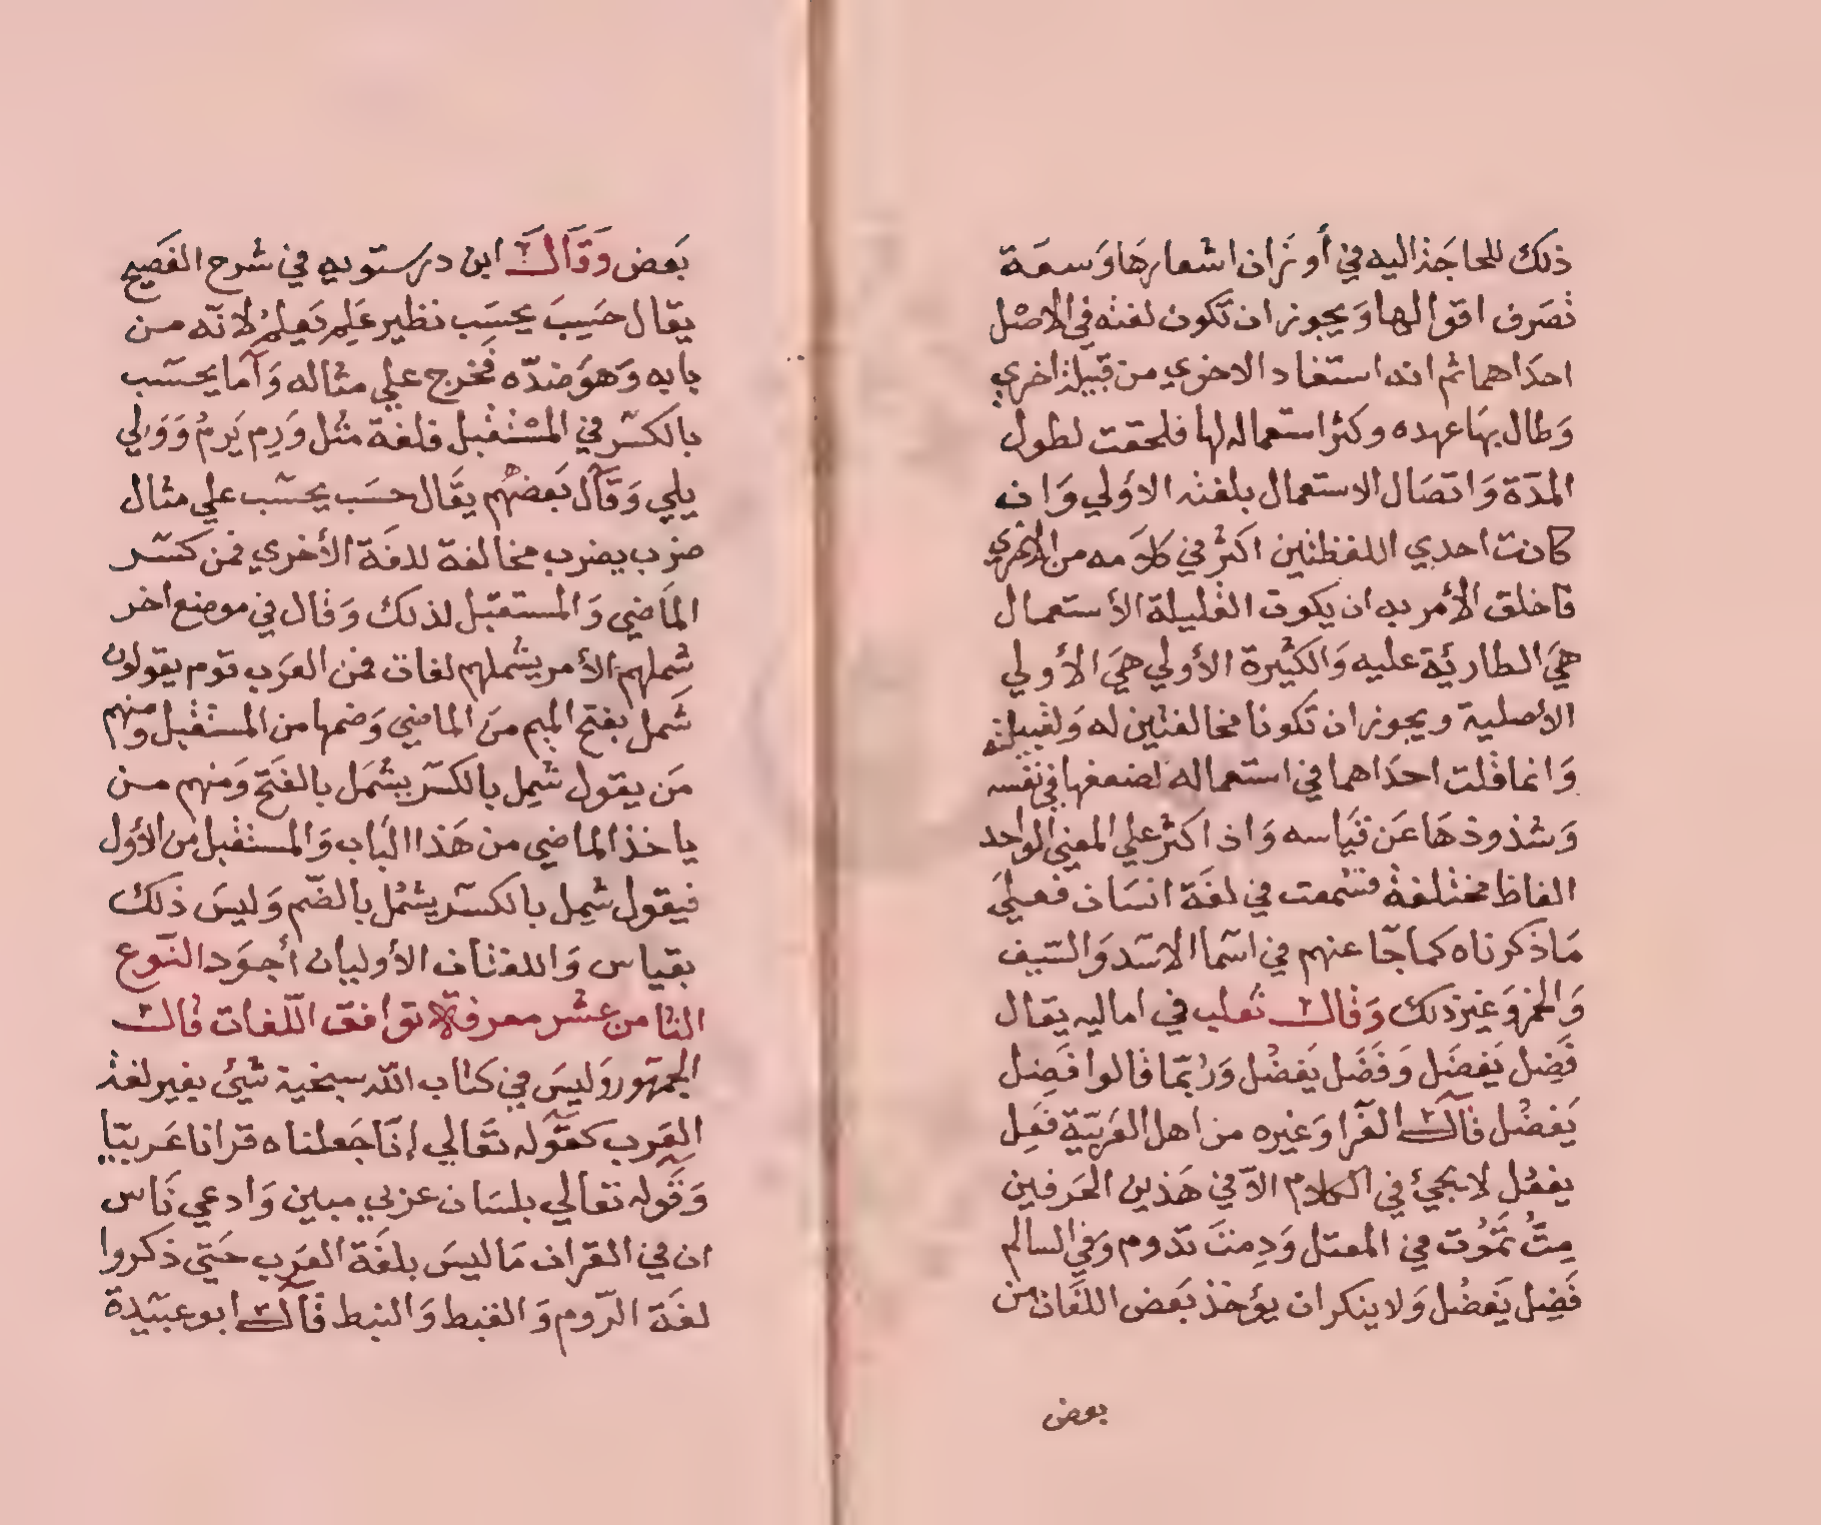 ذلك للحاجة اليه في أوزان اشعارها وسعة
تصرف اقوالها ويجوز ان تكون لغته في الاصل
احداهما ثم انه استفاد الاخري من قبيلة اخري
وطال بها عهده وكثر استعماله لها فلحقت لطول
المدّة واتصال الاستعمال بلغته الاولي وان
كانت احدي اللفظتين اكثر في كلامه من الاخري
فاخلق الأمر به ان يكون القليلة الأستعمال
هي الطارئة عليه والكثيرة الأولي هي الأولي
الأصلية ويجوز ان تكونا مخالفتين له ولقبيلته
وانما قلت احداهما في استعماله لضعفها في نفسه
وشذوذها عن قياسه واذا كثر علي المعني الواحد
الفاظ مختلفة فسمعت في لغة انسان فعلي
ما ذكرناه كما جا عنهم في اسما الاسد والسيف
والخمر وغير ذلك وقال ثعلب في اماليه يقال
فَضِل يَفضَل وَفَضَل يَفضُل وَرُبّما قالوا فَضِل
يَفضُل قال الفرا وغيره من اهل العربيّة فَعِل
يفعُل لا يجيئ في الكلام الّا في هذين الحرفين
مِتُّ تَمُوت في المعتل وَدِمتَ تدوم وفي السالم
فَضِل يَفضُل ولا ينكر ان يؤخذ بعض اللغات من
بعض
بَعض وَقال ابن درستويه في شرح الفصيح
يقال حَسِبَ يحسَب نظير عَلِم يَعلمُ لانّه من
بابه وَهوَ ضدّه فخرج علي مثاله وَأما يحسب
بالكسر في المستقبل فلغة مثل وَرِم يَرِمُ وَوَلي
يلي وَقال بَعضهم يقال حسَب يحسب علي مثال
ضرب يضرب مخالفة للغة الأخري فمن كسر
الماضي والمستقبل لذلك وَقال في موضع اخر
شملهم الأمر يشملهم لغات فمن العرب قوم يقولون
شَمل بفتح الميم منَ الماضي وَضمها من المستقبل ومنهم
مَن يقول شَمِل بالكسر يشمَل بالفتح وَمنهم من
ياخذ الماضي من هَذا الباب وَالمستقبل من الأول
فيقول شَمِل بالكسر يشمُل بالضّم وَليسَ ذلك
بقياس وَاللغتان الأوليان أجوَد النّوع
الثامن عشر معرفة توافق اللّغات قال
الجمهور وَليسَ في كتاب الله سبحنيه شيئ بغير لغة
العرب كقوله تعالي إنّا جَعلناه قرانا عَربيّا
وَقوله تعالي بلسان عربي مبين وَادعي نَاس
ان في القران مَا ليسَ بلغَة العَرب حَتي ذكروا
لغَة الرّوم وَالقبط وَالنبط قال ابو عبَيدة